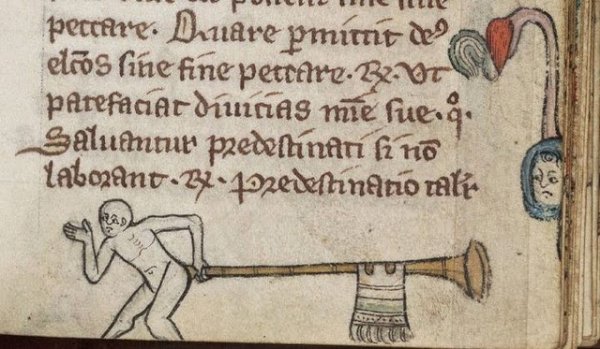 peccare. Quare permittit deꝰ
elcōs sine fine peccare. R̷. Ut
patefaciat divicias mīe sue. qͦ.
Saluantur predestinati si nō
laborant. R̷. Predestinatio talr̷